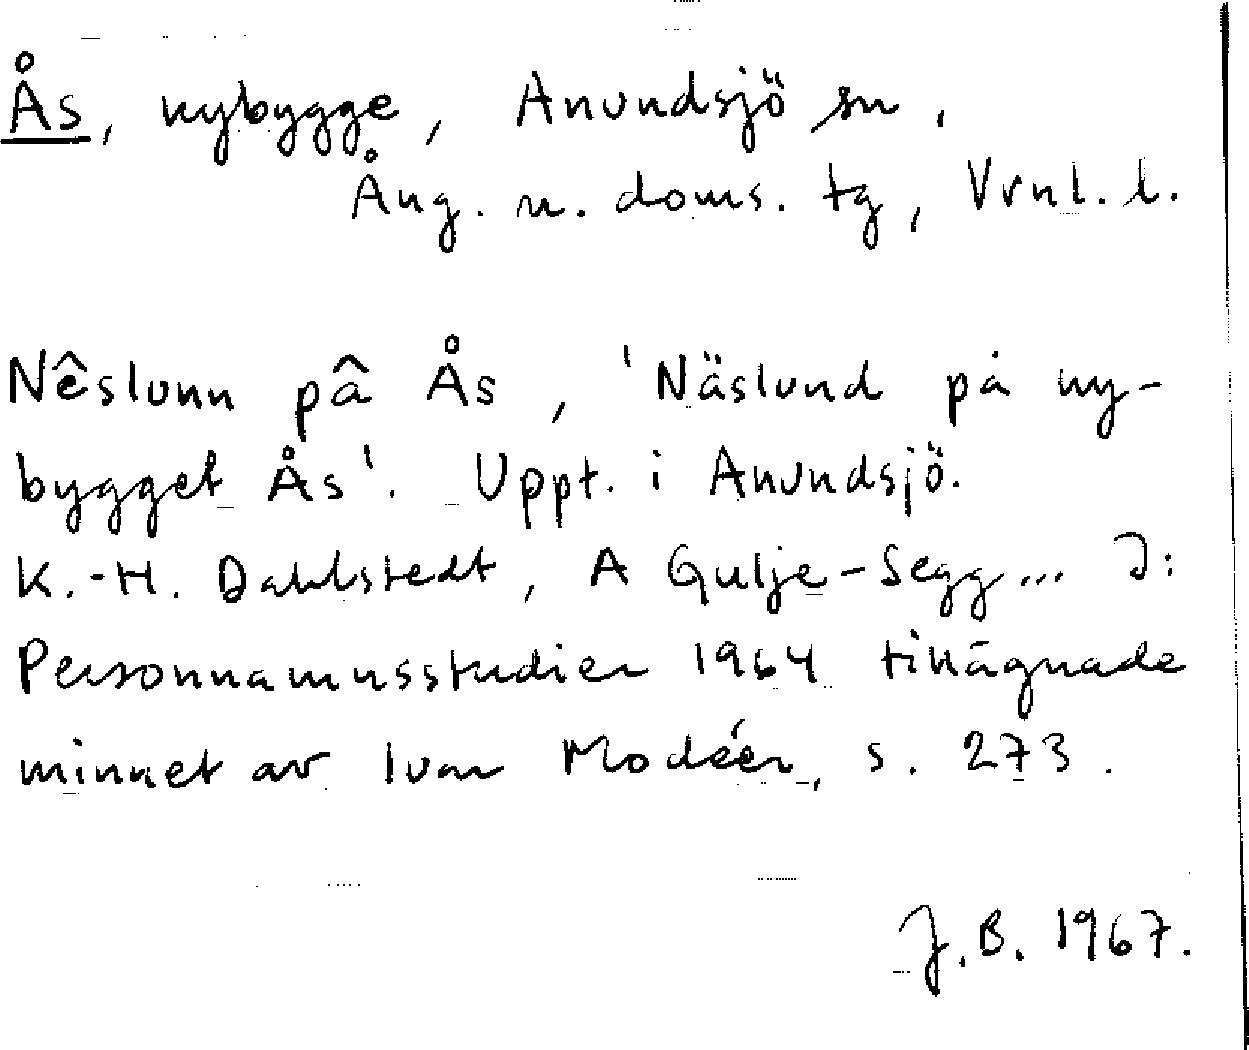 Ås, nybygge, Anundsjö sn,
Ång. n. doms. tg, Vrnl. l.
Nêslunn pâ Ås, 'Näslund på ny-
bygget Ås'. Uppt. i Anundsjö.
K.-H. Dahlstedt, A Gulje-Segg... I:
Personnamnsstudier 1964 tillägnade
minnet av Ivar Modéer, s. 273.
J.B. 1967.